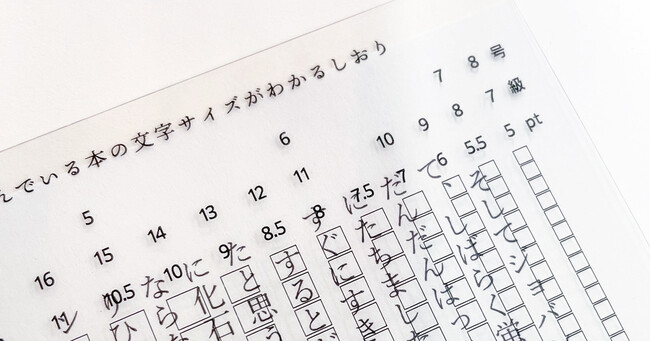 んでいる本の文字サイズがわかるしおり
5 6 7 8 号
16 15 14 13 12 11 10 9 8 7 級
11 10.5 10 9 8.5 8 7.5 7 6 5.5 5 pt
そしてジョバ
て、しばらく蛍
だんだんはっ
にたちました
すぐにすき
すると
たと思う
に化石
なら